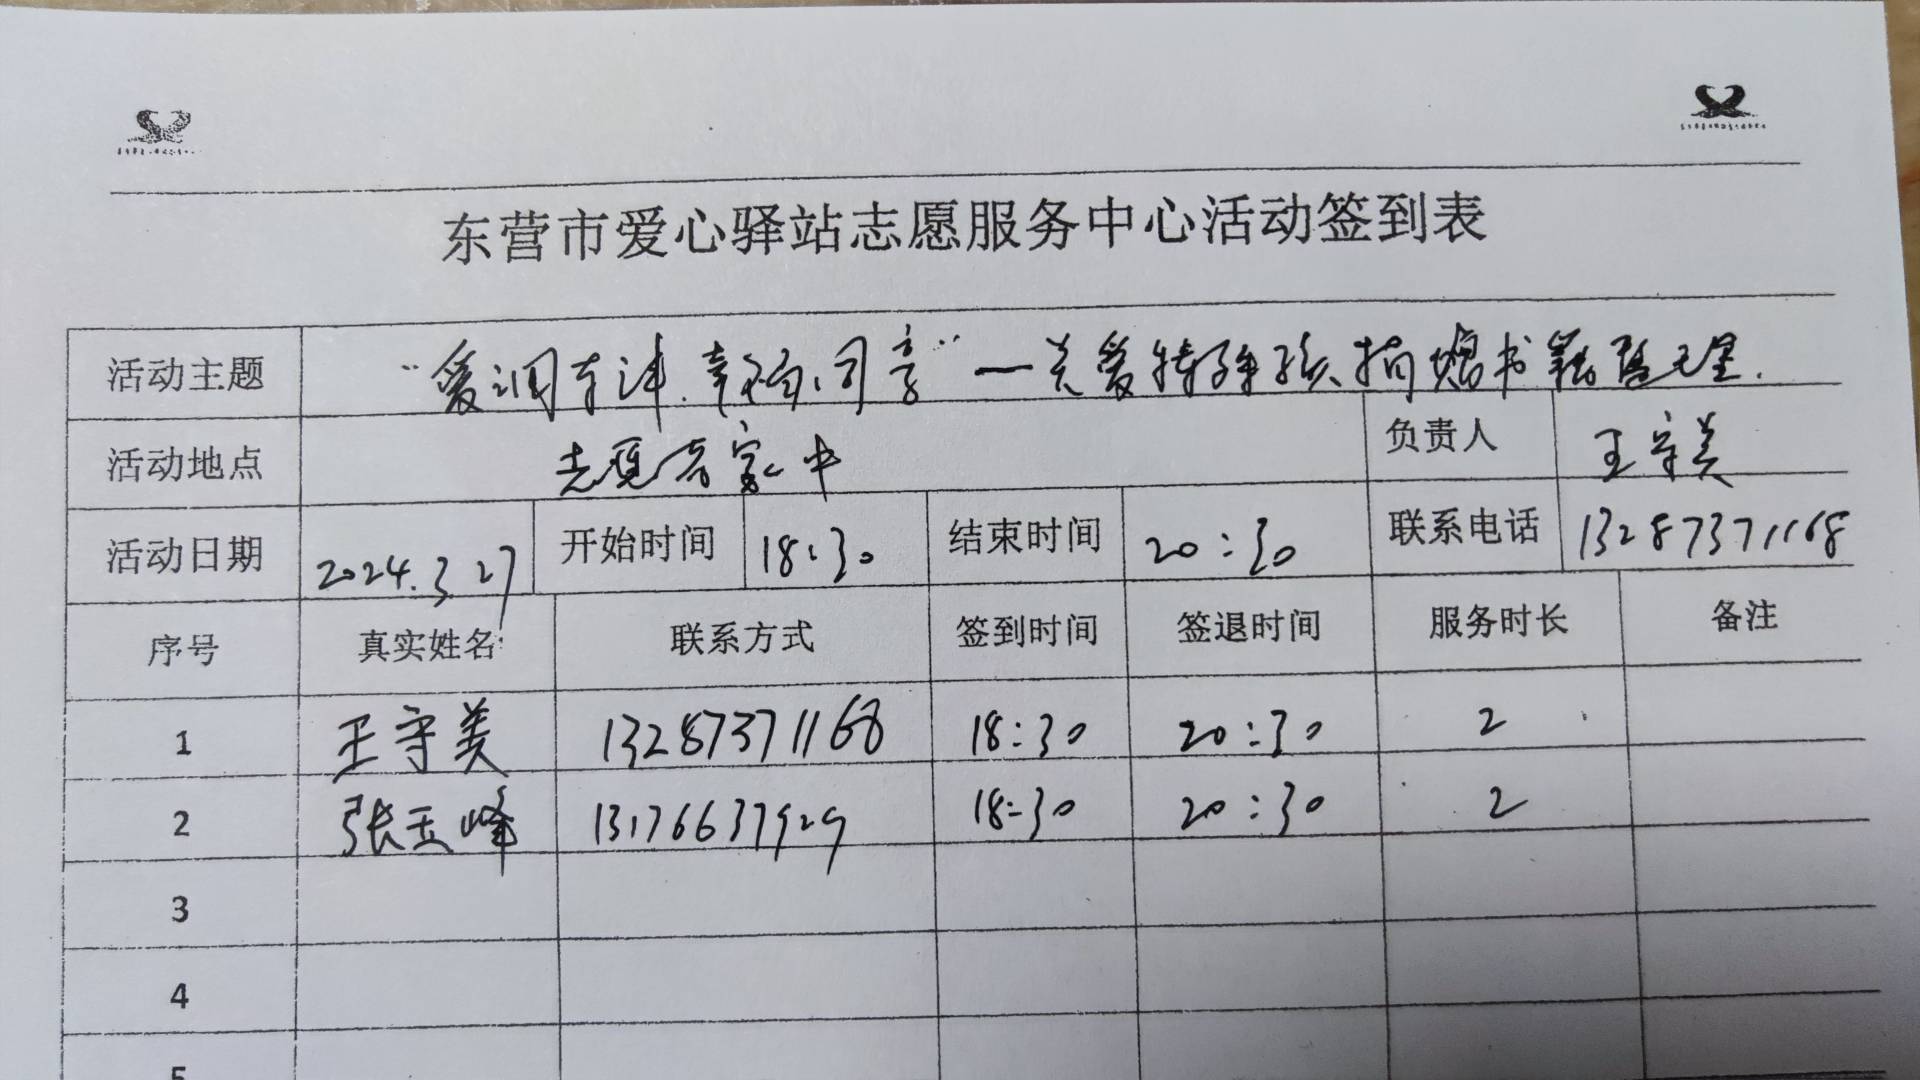 东营市爱心驿站志愿服务中心活动签到表
活动主题 “爱润东津、幸福同享”—关爱特殊孩捐赠书籍整理.
活动地点 志愿者家中 负责人 王守美
活动日期 2024.3.27 开始时间 18:30 结束时间 20:30 联系电话 13287371168
序号 真实姓名 联系方式 签到时间 签退时间 服务时长 备注
1 王守美 13287371168 18:30 20:30 2
2 张玉峰 13176637929 18:30 20:30 2
3
4
5